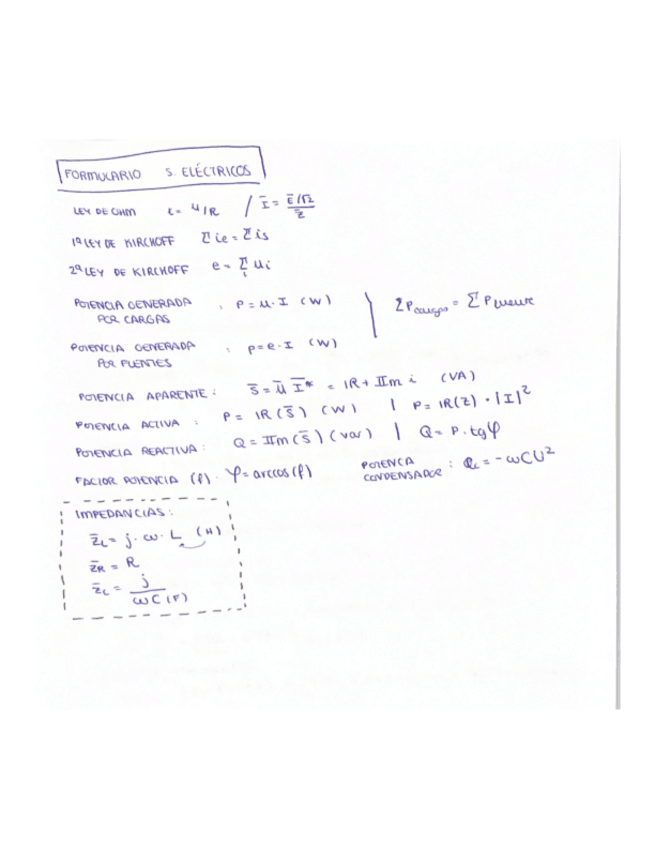 FORMULARIO S. ELÉCTRICOS
LEY DE OHM i = u/R / Ī = Ē/√2 / Z̄
1ª LEY DE KIRCHOFF Σ ie = Σ is
2ª LEY DE KIRCHOFF e = Σ ui
i
POTENCIA GENERADA POR CARGAS : P = u · I (W)
ΣP cargas = Σ P fuente
POTENCIA GENERADA POR FUENTES : p = e · I (W)
POTENCIA APARENTE : S̄ = ū Ī* = IR + IIm i (VA)
POTENCIA ACTIVA : P = IR (S̄) (W) | P = IR(Z) · |I|²
POTENCIA REACTIVA : Q = IIm (S̄) (var) | Q = P · tg φ
FACTOR POTENCIA (f) · φ = arccos (f)
POTENCA CONDENSADOR : Qc = - ωCU²
IMPEDANCIAS :
z̄L = j · ω · L (H)
z̄R = R
z̄c = j / ωC (F)